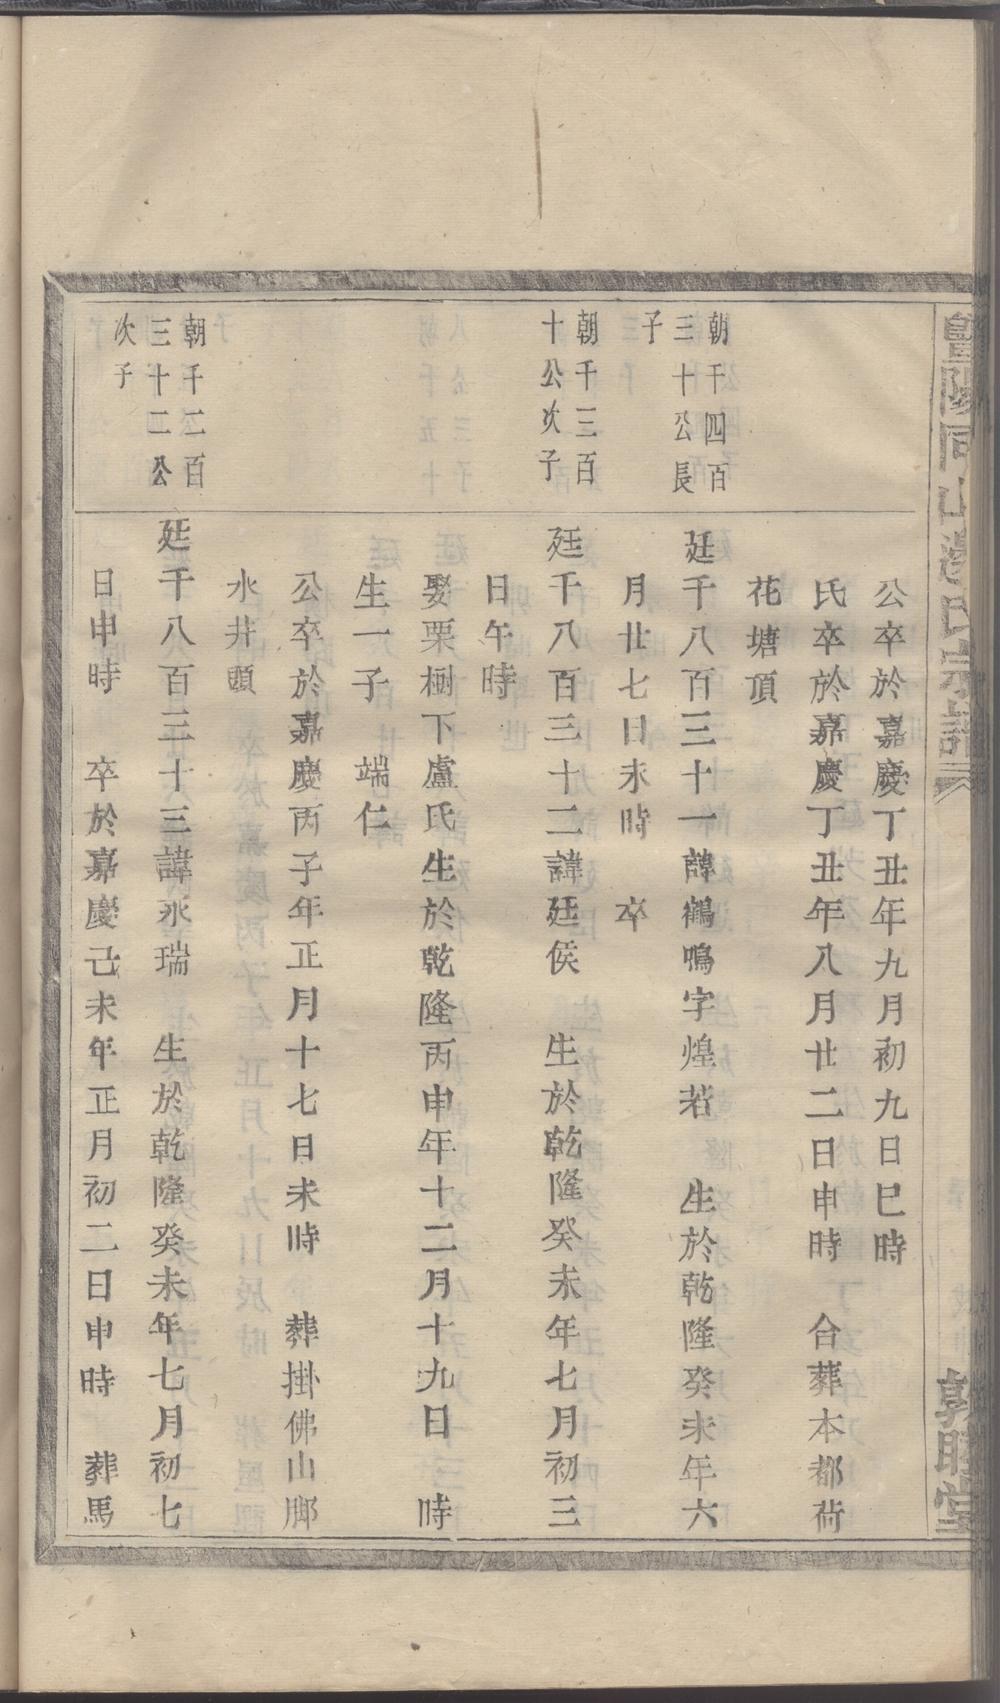 暨陽同山邊氏宗譜
敦睦堂
公卒於嘉慶丁丑年九月初九日巳時
氏卒於嘉慶丁丑年八月廿二日申時　合葬本都荷
花塘頂
朝千四百
三十公長
子
廷千八百三十一諱鶴鳴字煌若　生於乾隆癸未年六
月廿七日未時　卒
朝千三百
十公次子
廷千八百三十二諱廷侯　生於乾隆癸未年七月初三
日午時
娶栗樹下盧氏生於乾隆丙申年十二月十九日　時
生一子　端仁
公卒於嘉慶丙子年正月十七日未時　葬掛佛山脚
水井頭
朝千二百
三十二公
次子
廷千八百三十三諱永瑞　生於乾隆癸未年七月初七
日申時　卒於嘉慶己未年正月初二日申時　葬馬